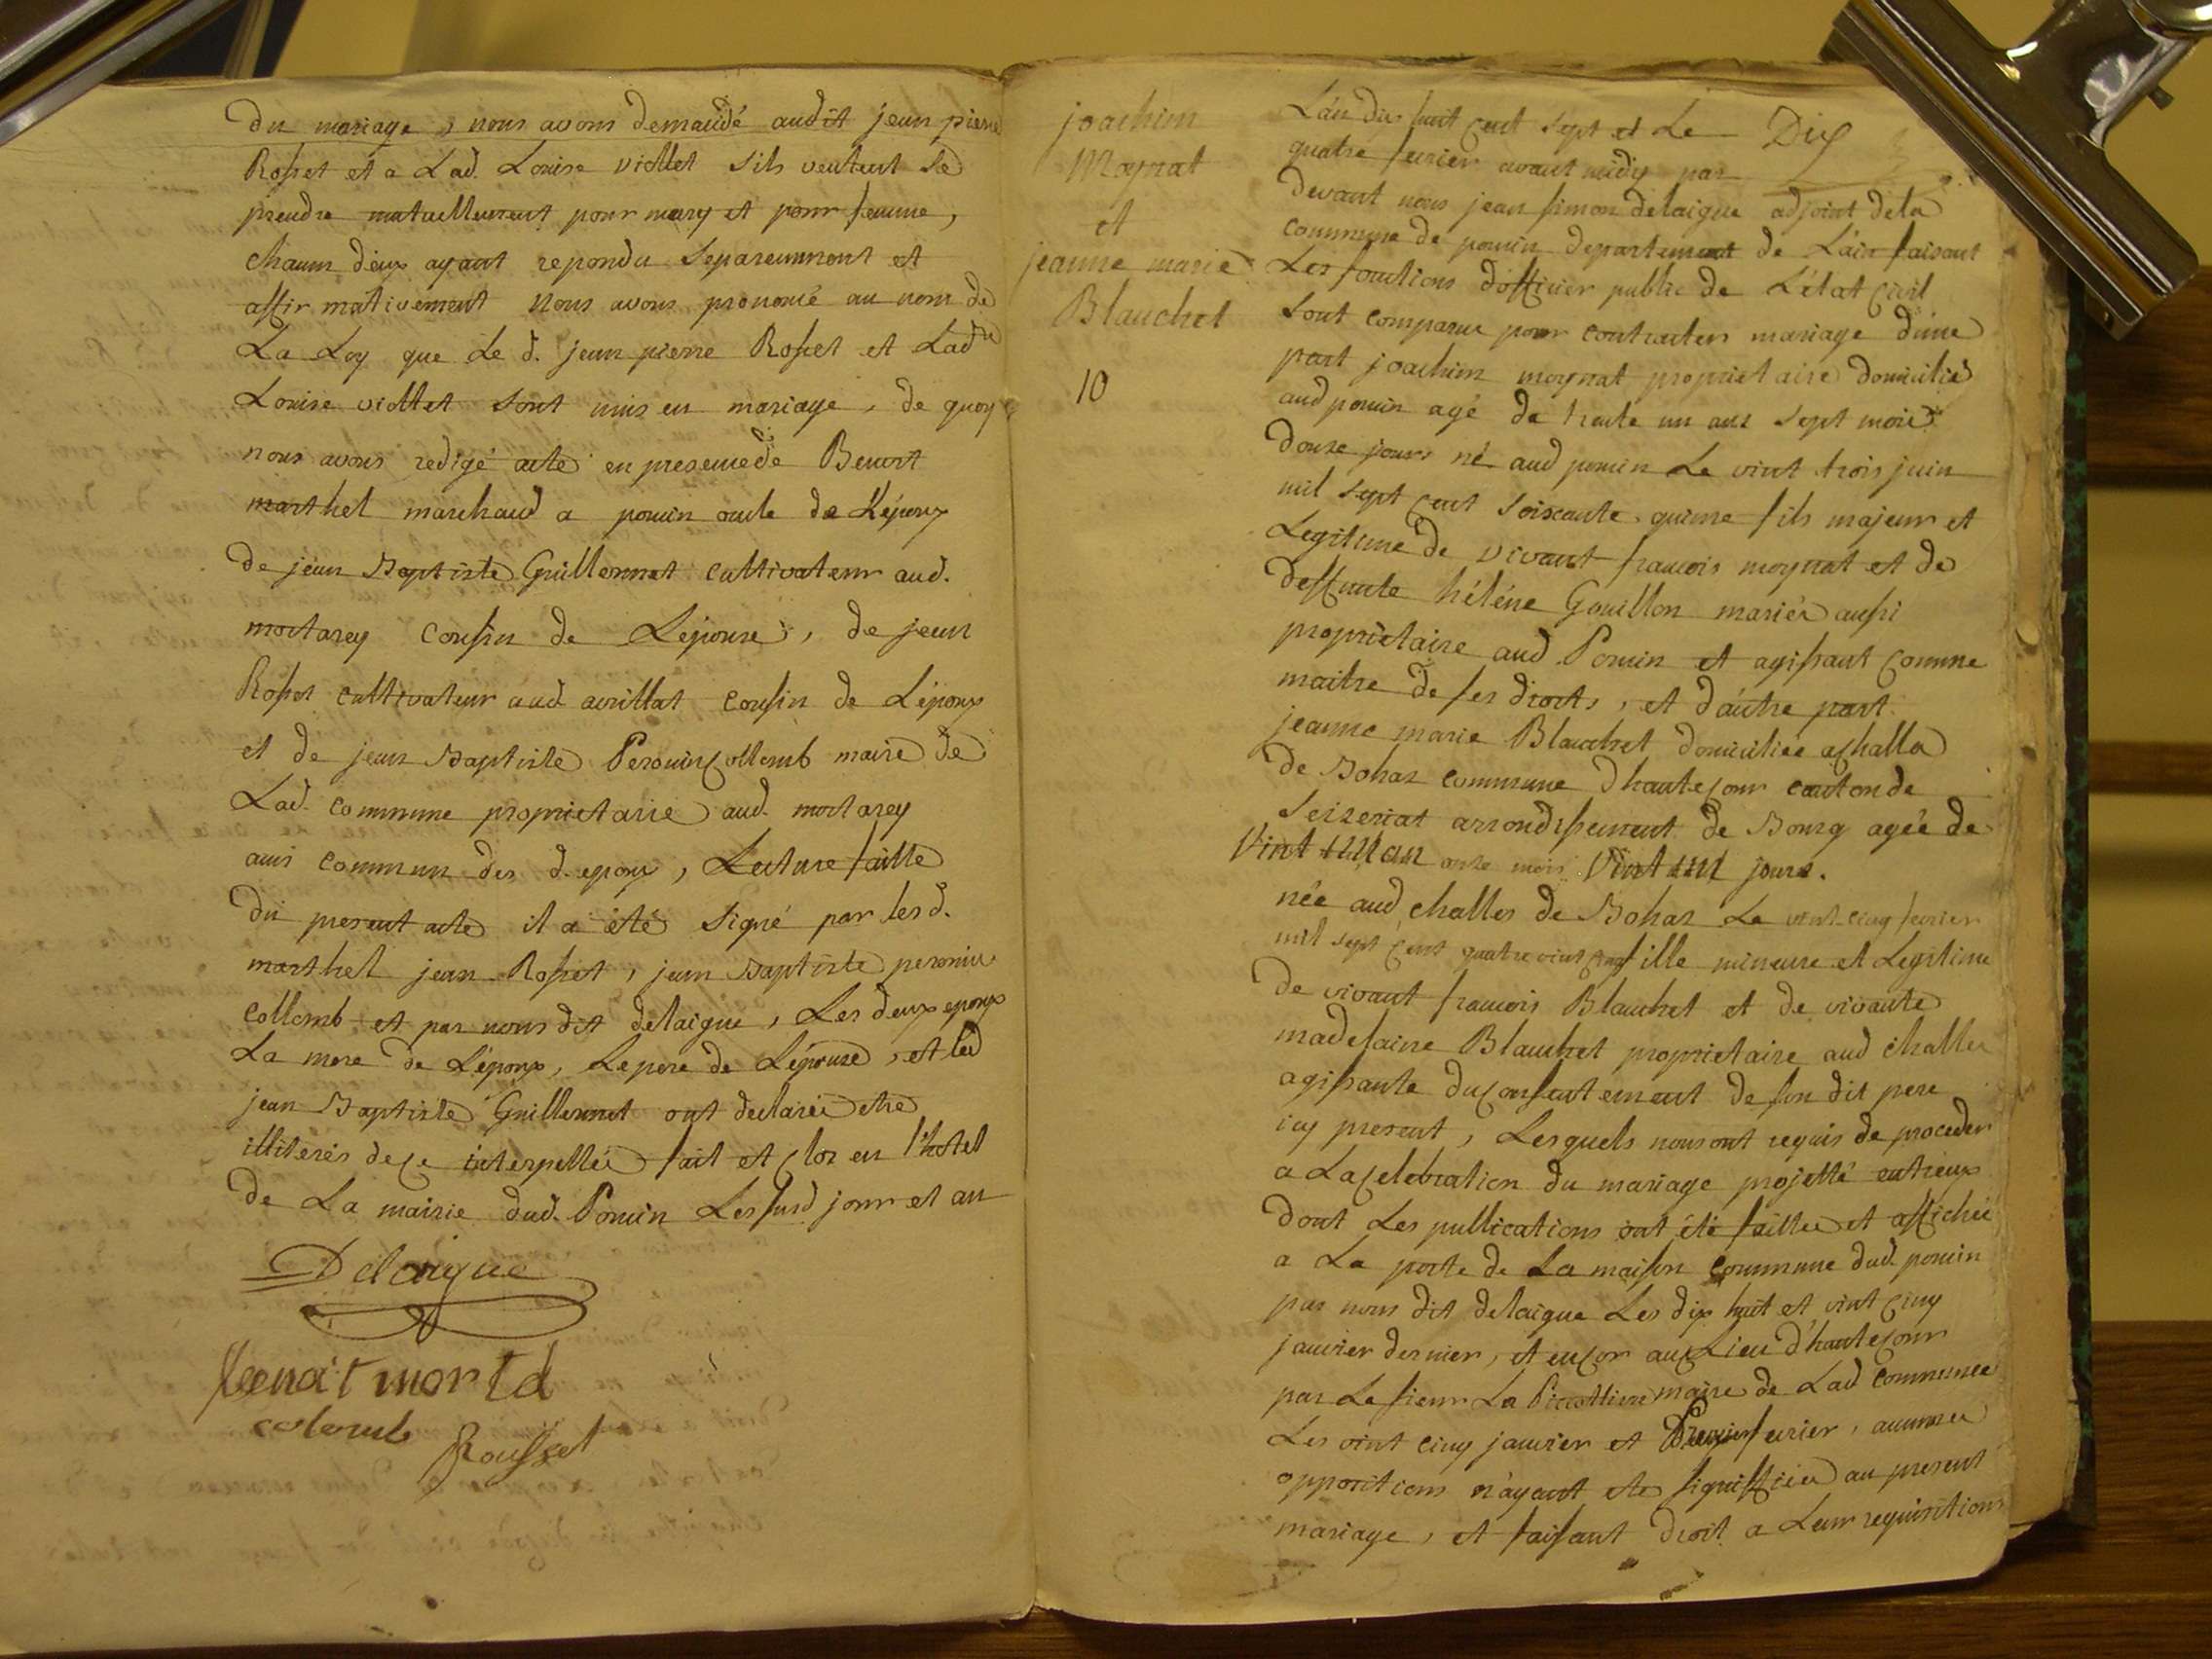 du mariage, nous avons demandé audit jean pierre
Rosset et a Lad. Louise viollet sils veulent se
prendre mutuellement pour mary et pour femme,
chacun deux ayant repondu separemment et
affirmativement nous avons prononcé au nom de
La Loy que Le d. jean pierre Rosset et Ladte
Louise viollet sont unis en mariage, de quoy
nous avons redigé acte en presence de Benoit
marthel marchand a poncin oncle de L'époux
de jean Baptiste Guillermet cultivateur aud.
mortarey cousin de Lepouse, de jean
Rosset cultivateur aud avrillat cousin de L'époux
et de jean Baptiste Perouin collomb maire de
Lad. commune proprietaire aud. mortarey
ami commun des d. epoux, Lecture faitte
du present acte il a été signé par les d.
marthel jean Rosset, jean Baptiste peronin
collomb et par nous dit delaigue, Les deux epoux
La mere de L'époux, Le pere de L'épouse, et led
jean Baptiste Guillermet ont declaréé etre
illiterés de ce interpellée fait et clos en l'hotel
de La mairie dud. Poncin Les susd jour et an
Delaigue
benoit martel
colomb
Rousset
joachim
Moynat
et
jeanne marie
Blanchet
10
L'an dix huit cent sept et Le Dix
quatre fevrier avant midy par
devant nous jean simon delaigue adjoint dela
commune de poncin departement de L'ain faisant
Les fonctions d'officier public de L'état civil
sont comparus pour contracter mariage d'une
part joachim moynat proprietaire domicilié
aud poncin agé de trente un ans sept mois
douze jours né aud poncin Le vint trois juin
mil sept cent soixante quinze fils majeur et
Legitime de vivant francois moynat et de
deffunte hélène Gouillon mariés aussi
proprietaire aud Poncin et agissant comme
maitre de ses droits, et d'autre part
jeanne marie Blanchet domiciliée a challe
de Bohas commune d'hautecour canton de
Seizeriat arrondissement de Bourg agée de
Vint un an onze mois Vint un jours.
née aud challes de Bohas Le vint cinq fevrier
mil sept cent quatre vint cinq fille mineure et Legitime
de vivant francois Blanchet et de vivante
madelaine Blanchet proprietaire aud challes
agissante du consentement de son dit pere
icy present, Lesquels nous ont requis de proceder
a La celebration du mariage projetté entreux
dont Les publications ont été faittes et affichée
a La porte de La maison commune dud. poncin
par nous dit delaigue Les dix huit et vint cinq
janvier dernier, et encor au Lieu d'hautecour
par Le sieur La maire de Lad commune
Les vint cinq janvier et Premier fevrier, aucunes
oppositions n'ayant ete signiffiée au present
mariage, et faisant droit a Leur requisitions